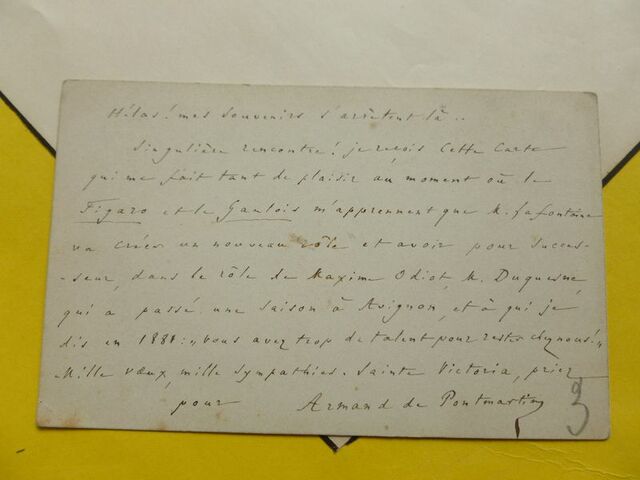 Hélas! mes souvenirs s'arrêtent là..
Singulière rencontre! je reçois cette carte
qui me fait tant de plaisir au moment où le
Figaro et le Gaulois m'apprennent que M. Lafontaine
va créer un nouveau rôle et avoir pour succes-
-seur, dans le rôle de Maxime Odiot, M. Duquesne
qui a passé une saison à Avignon, et à qui je
dis en 1881: "Vous avez trop de talent pour rester chez nous!"
Mille vœux, mille sympathies. Sainte Victoria, priez
pour Armand de Pontmartin
3